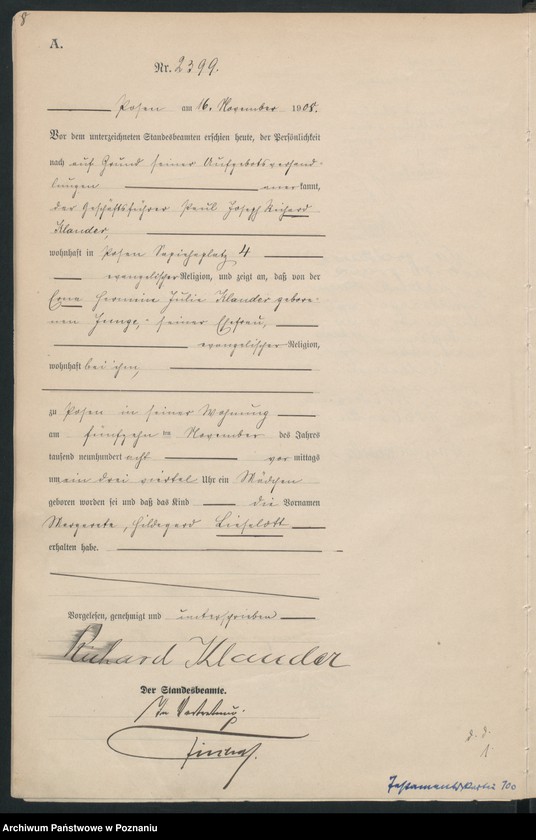 8
A.
Nr. 2399.
Posen am 16. November 1908.
Vor dem unterzeichneten Standesbeamten erschien heute, der Persönlichkeit
nach auf Grund seiner Aufgebotsverhand-
lungen anerkannt,
der Geschäftsführer Paul Joseph Richard
Klander,
wohnhaft in Posen Sapiehaplatz 4
evangelischer Religion, und zeigt an, daß von der
Erna Hermine Julie Klander gebore-
nen Junge, seiner Ehefrau,
evangelischer Religion,
wohnhaft bei ihm,
zu Posen in seiner Wohnung
am fünfzehnten November des Jahres
tausend neunhundert acht vor mittags
um ein drei viertel Uhr ein Mädchen
geboren worden sei und daß das Kind die Vornamen
Margarete, Hildegard Lieselott
erhalten habe.
Vorgelesen, genehmigt und unterschrieben
Richard Klander
Der Standesbeamte.
In Vertretung.
Testamentskartei 700
Archiwum Państwowe w Poznaniu